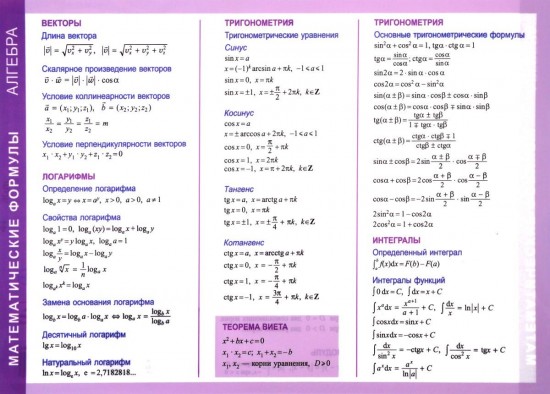 МАТЕМАТИЧЕСКИЕ ФОРМУЛЫ
АЛГЕБРА
ВЕКТОРЫ
Длина вектора
|v̅| = √(v²ₓ + v²ᵧ), |v̅| = √(v²ₓ + v²ᵧ + v²_z)
Скалярное произведение векторов
v̅ · w̅ = |v̅| · |w̅| · cosα
Условие коллинеарности векторов
a̅ = (x₁; y₁; z₁), b̅ = (x₂; y₂; z₂)
x₁/x₂ = y₁/y₂ = z₁/z₂ = m
Условие перпендикулярности векторов
x₁ · x₂ + y₁ · y₂ + z₁ · z₂ = 0
ЛОГАРИФМЫ
Определение логарифма
logₐx = y ⇔ x = aʸ, x > 0, a > 0, a ≠ 1
Свойства логарифма
logₐ1 = 0, logₐ(xy) = logₐx + logₐy
logₐxʸ = y logₐx, logₐa = 1
logₐ x/y = logₐx − logₐy
logₐ ⁿ√x = 1/n logₐx
logₐₖxᵏ = logₐx
Замена основания логарифма
log_b x = log_b a · logₐx ⇔ logₐx = log_b x / log_b a
Десятичный логарифм
lg x = log₁₀x
Натуральный логарифм
ln x = logₑx, e = 2,7182818...
ТРИГОНОМЕТРИЯ
Тригонометрические уравнения
Синус
sin x = a
x = (−1)ᵏ arcsin a + πk, −1 < a < 1
sin x = 0, x = πk
sin x = ±1, x = ± π/2 + 2πk, k∈Z
Косинус
cos x = a
x = ± arccos a + 2πk, −1 < a < 1
cos x = 0, x = π/2 + πk
cos x = 1, x = 2πk
cos x = −1, x = π + 2πk, k∈Z
Тангенс
tg x = a, x = arctg a + πk
tg x = 0, x = πk
tg x = ±1, x = ± π/4 + πk, k∈Z
Котангенс
ctg x = a, x = arcctg a + πk
ctg x = 0, x = π/2 + πk
ctg x = 1, x = π/4 + πk
ctg x = −1, x = 3π/4 + πk, k∈Z
ТЕОРЕМА ВИЕТА
x² + bx + c = 0
x₁ · x₂ = c; x₁ + x₂ = −b
x₁, x₂ — корни уравнения, D ≥ 0
ТРИГОНОМЕТРИЯ
Основные тригонометрические формулы
sin²α + cos²α = 1, tgα · ctgα = 1
tgα = sinα/cosα; ctgα = cosα/sinα
sin2α = 2 · sinα · cosα
cos2α = cos²α − sin²α
sin(α ± β) = sinα · cosβ ± cosα · sinβ
cos(α ± β) = cosα · cosβ ∓ sinα · sinβ
tg(α ± β) = (tgα ± tgβ)/(1 ∓ tgα · tgβ)
ctg(α ± β) = (ctgα · ctgβ ∓ 1)/(ctgβ ± ctgα)
sinα ± sinβ = 2 sin (α ± β)/2 · cos (α ∓ β)/2
cosα + cosβ = 2 cos (α + β)/2 · cos (α − β)/2
cosα − cosβ = −2 sin (α + β)/2 · sin (α − β)/2
2sin²α = 1 − cos2α
2cos²α = 1 + cos2α
ИНТЕГРАЛЫ
Определенный интеграл
∫ₐᵇ f(x)dx = F(b) − F(a)
Интегралы функций
∫0dx = C, ∫dx = x + C
∫xᵃdx = xᵃ⁺¹/(a + 1) + C, ∫dx/x = ln|x| + C
∫cosxdx = sinx + C
∫sinxdx = −cosx + C
∫dx/sin²x = −ctgx + C, ∫dx/cos²x = tgx + C
∫aˣdx = aˣ/ln|a| + C